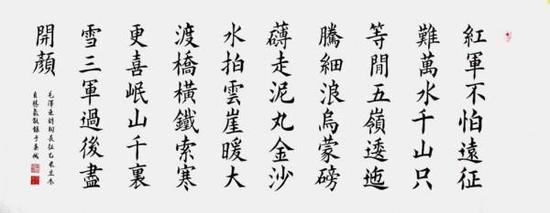 紅軍不怕遠征
難萬水千山只
等閒五嶺逶迤
騰細浪烏蒙磅
礴走泥丸金沙
水拍雲崖暖大
渡橋橫鐵索寒
更喜岷山千裏
雪三軍過後盡
開顏
毛澤東詩詞長征乙未